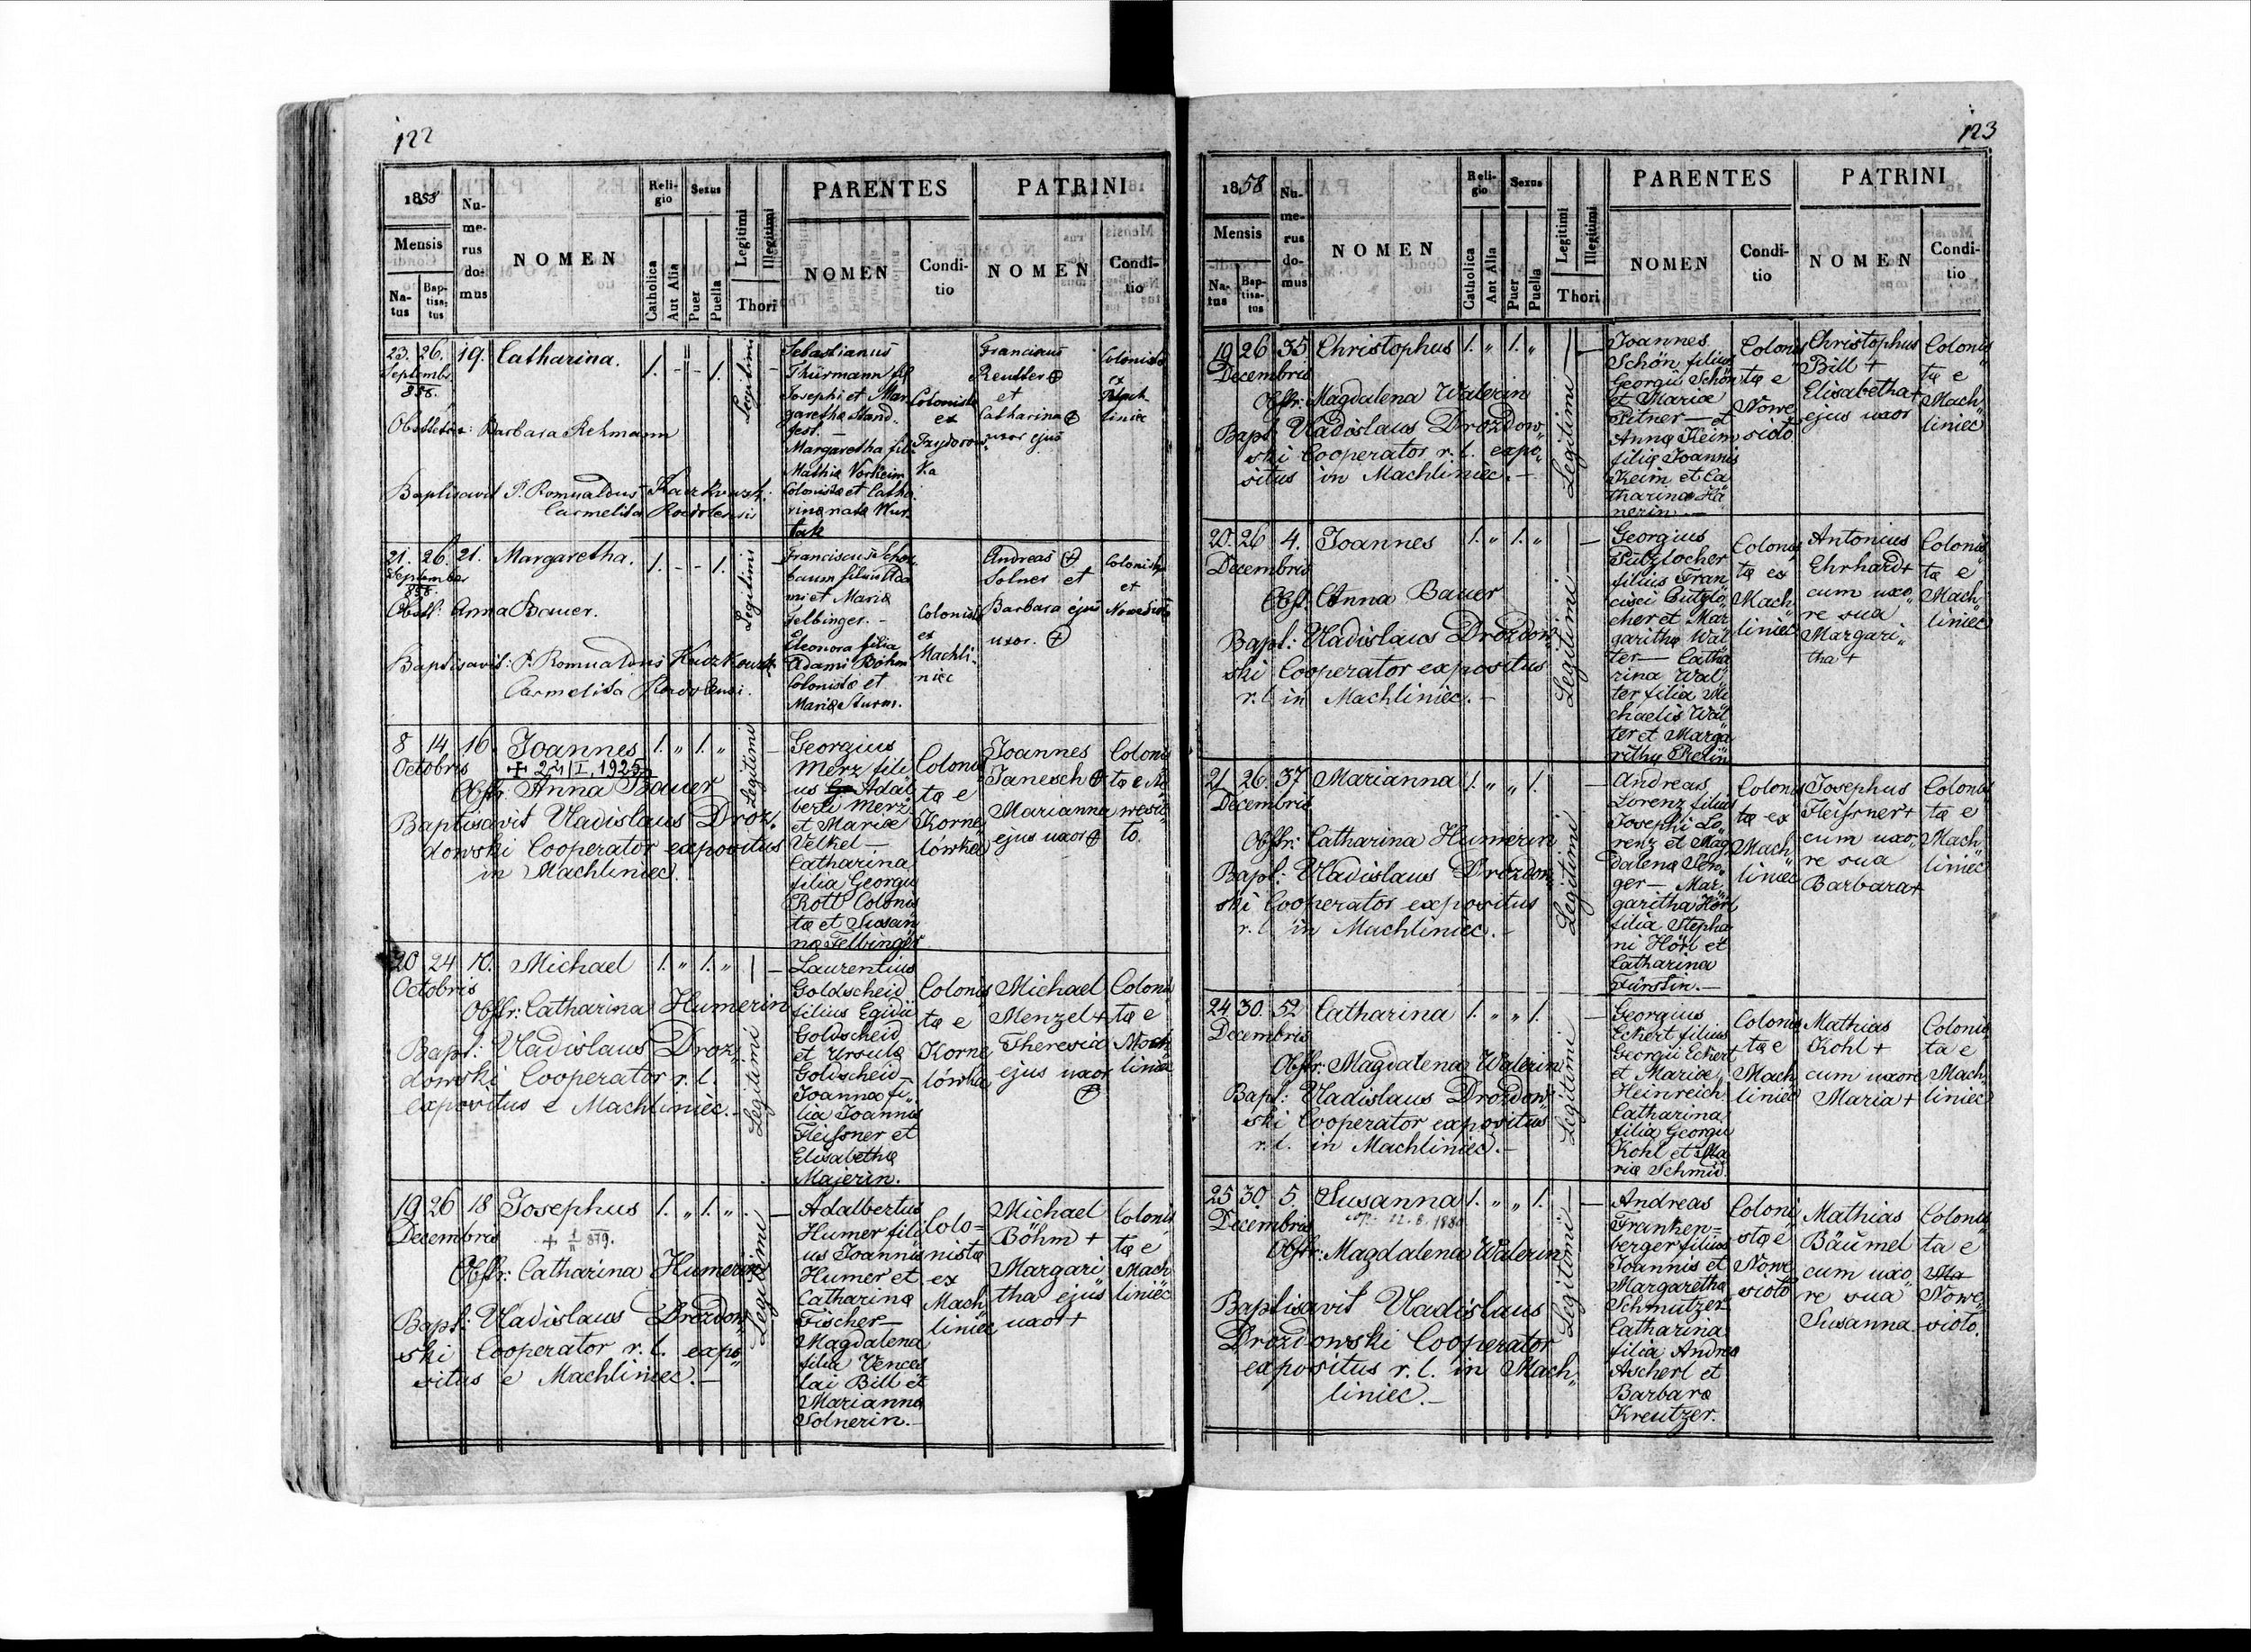 122
1858
Mensis
Na-
tus
Bap-
tisa-
tus
Nu-
me-
rus
do-
mus
NOMEN
Reli-
gio
Catholica
Aut Alia
Sexus
Puer
Puella
Legitimi
Illegitimi
Thori
PARENTES
NOMEN
Condi-
tio
PATRINI
NOMEN
Condi-
tio
23. 26. 19. Catharina. 1. - - 1.
Septembr.
858.
Obstetrix: Barbara Rehmann
Baptisavit P. Romualdus
Carmelita
Legitimi
Sebastianus
Thürmann fil
Josephi et Mar
garethæ Stand
fest. —
Margaretha fil:
Mathiæ Vorkeim
Colonistæ et Catha
rinæ natæ Wur
tak
Colonistæ
ex
Przydorow
ka
Franciscus
Reutter +
et
Catharina +
uxor ejus
Colonistæ
ex
Mach
liniec
21. 26. 21. Margaretha. 1. - - 1.
September
858.
Obst: Anna Bauer.
Baptisavit: P. Romualdus
Carmelita
Legitimi
Franciscus Schön
baum filius Ada
mi et Mariæ
Felbinger. —
Eleonora filia
Adami Böhm
Colonistæ et
Mariæ Sturm.
Colonistæ
ex
Machli-
niec
Andreas +
Solner et
Barbara ejus
uxor. +
Colonistæ
et
8 14 16 Joannes 1. „ 1. „
Octobris + 24/I. 1925
Obstr: Anna Bauer
Baptisavit Vladislaus Droz„
dowski Cooperator expositus
in Machliniec.
Legitimi
Georgius
Merz fili
us Adal
berti Merz
et Mariæ
Velkel —
Catharina
filia Georgii
Rott Colonis
tæ et Susan
næ Felbinger
Colonis
tæ e
Korne
lówka
Joannes
Janesch +
Marianna
ejus uxor +
Colonis
tæ e No
wesio
to.
20 24 10. Michael 1. „ 1. „
Octobris
Obstr: Catharina Humerin
Bapt: Vladislaus Droz„
dowski Cooperator r. l.
expositus e Machliniec. —
Legitimi
Laurentius
Goldscheid
filius Egidii
Goldscheid
et Ursulæ
Goldscheid —
Joanna fi„
lia Joannis
Fleißner et
Elisabethæ
Majerin.
Colonis
tæ e
Korne
lówka
Michael
Menzel +
Theresia
ejus uxor
+
Colonis
tæ e
Mach
liniec
19 26 18 Josephus 1. „ 1. „
Decembris
Obstr: Catharina Humerin
Bapt: Vladislaus Drozdow„
ski Cooperator r. l. expo„
situs e Machliniec. —
Legitimi
Adalbertus
Humer fili
us Joannis
Humer et
Catharinæ
Fischer —
Magdalena
filia Vences
lai Bill et
Mariannæ
Solnerin. —
Colo=
nistæ
ex
Mach
liniec
Michael
Böhm +
Margari
tha ejus
uxor +
Colonis
tæ e
Mach
liniec
123
1858
Mensis
Na-
tus
Bap-
tisa-
tus
Nu-
me-
rus
do-
mus
NOMEN
Reli-
gio
Catholica
Ant Alia
Sexus
Puer
Puella
Legitimi
Illegitimi
Thori
PARENTES
NOMEN
Condi-
tio
PATRINI
NOMEN
Condi-
tio
19 26 35 Christophus 1. „ 1. „
Decembris
Obstr: Magdalena Walerin
Bapt: Vladislaus Drozdow„
ski Cooperator r. l. expo„
situs in Machliniec. —
Legitimi
Joannes
Schön filius
Georgii Schön
et Mariæ
Pitner — et
Anna Keim
filia Joannis
Keim et Ca
tharinæ Hä
nerin. —
Colonis
tæ e
Nowe
sioto
Christophus
Bill +
Elisabetha +
ejus uxor
Colonis
tæ e
Mach„
liniec
20. 26 4. Joannes 1. „ 1. „
Decembris
Obst. Anna Bauer
Bapt: Vladislaus Drozdow„
ski Cooperator expositus
r. l. in Machliniec. —
Legitimi
Georgius
Putzlocher
filius Fran
cisci Putzlo
cher et Mar
garithæ Wal
ter — Catha
rina Wal
ter filia Mi
chaelis Wal
ter et Marga
rithæ
Colonis
tæ ex
Mach„
liniec
Antonius
Ehrhard +
cum uxo„
re sua
Margari„
tha +
Colonis
tæ e
Mach„
liniec
21 26. 37 Marianna 1. „ „ 1.
Decembris
Obstr: Catharina Humerin
Bapt: Vladislaus Drozdow„
ski Cooperator expositus
r. l. in Machliniec. —
Legitimi
Andreas
Lorenz filius
Josephi Lo„
renz et Mag
dalenæ Sen„
ger — Mar„
garitha Hörl
filia Stepha
ni Hörl et
Catharina
Fürstin. —
Colonis
tæ ex
Mach„
liniec
Josephus
Fleißner +
cum uxo„
re sua
Barbara +
Colonis
tæ e
Mach„
liniec
24 30. 52 Catharina 1. „ „ 1.
Decembris
Obstr: Magdalena Walerin
Bapt: Vladislaus Drozdow„
ski Cooperator expositus
r. l. in Machliniec. —
Legitimi
Georgius
Eckert filius
Georgii Eckert
et Mariæ
Heinreich
Catharina
filia Georgii
Kohl et Ma
riæ Schmid.
Colonis
tæ e
Mach
liniec
Mathias
Kohl +
cum uxore
Maria +
Colonis
ta e
Mach„
liniec
25 30 5. Susanna 1. „ „ 1.
Decembris
Obstr: Magdalena Walerin
Baptisavit Vladislaus
Drozdowski Cooperator
expositus r. l. in Mach„
liniec. —
Legitimi
Andreas
Franken=
berger filius
Joannis et
Margarethæ
Schmutzer
Catharina
filia Andreæ
Ascherl et
Barbaræ
Kreutzer.
Coloni
stæ e
Nowe
sioto
Mathias
Bäumel
cum uxo„
re sua
Susanna
Colonis
ta e
Ma
Nowe„
sioto.